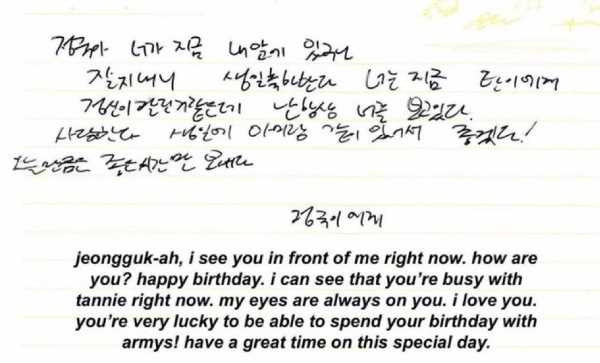 정국아 너가 지금 내 앞에 있구나
잘지내니 생일축하한다 너는 지금 탄이에게
정신이 팔린거같은데 난 항상 너를 보고있다.
사랑한다 생일에 아미랑 같이 있어서 좋겠다!
오늘만큼은 좋은시간만 보내라
정국이에게
jeongguk-ah, i see you in front of me right now. how are
you? happy birthday. i can see that you're busy with
tannie right now. my eyes are always on you. i love you.
you're very lucky to be able to spend your birthday with
armys! have a great time on this special day.